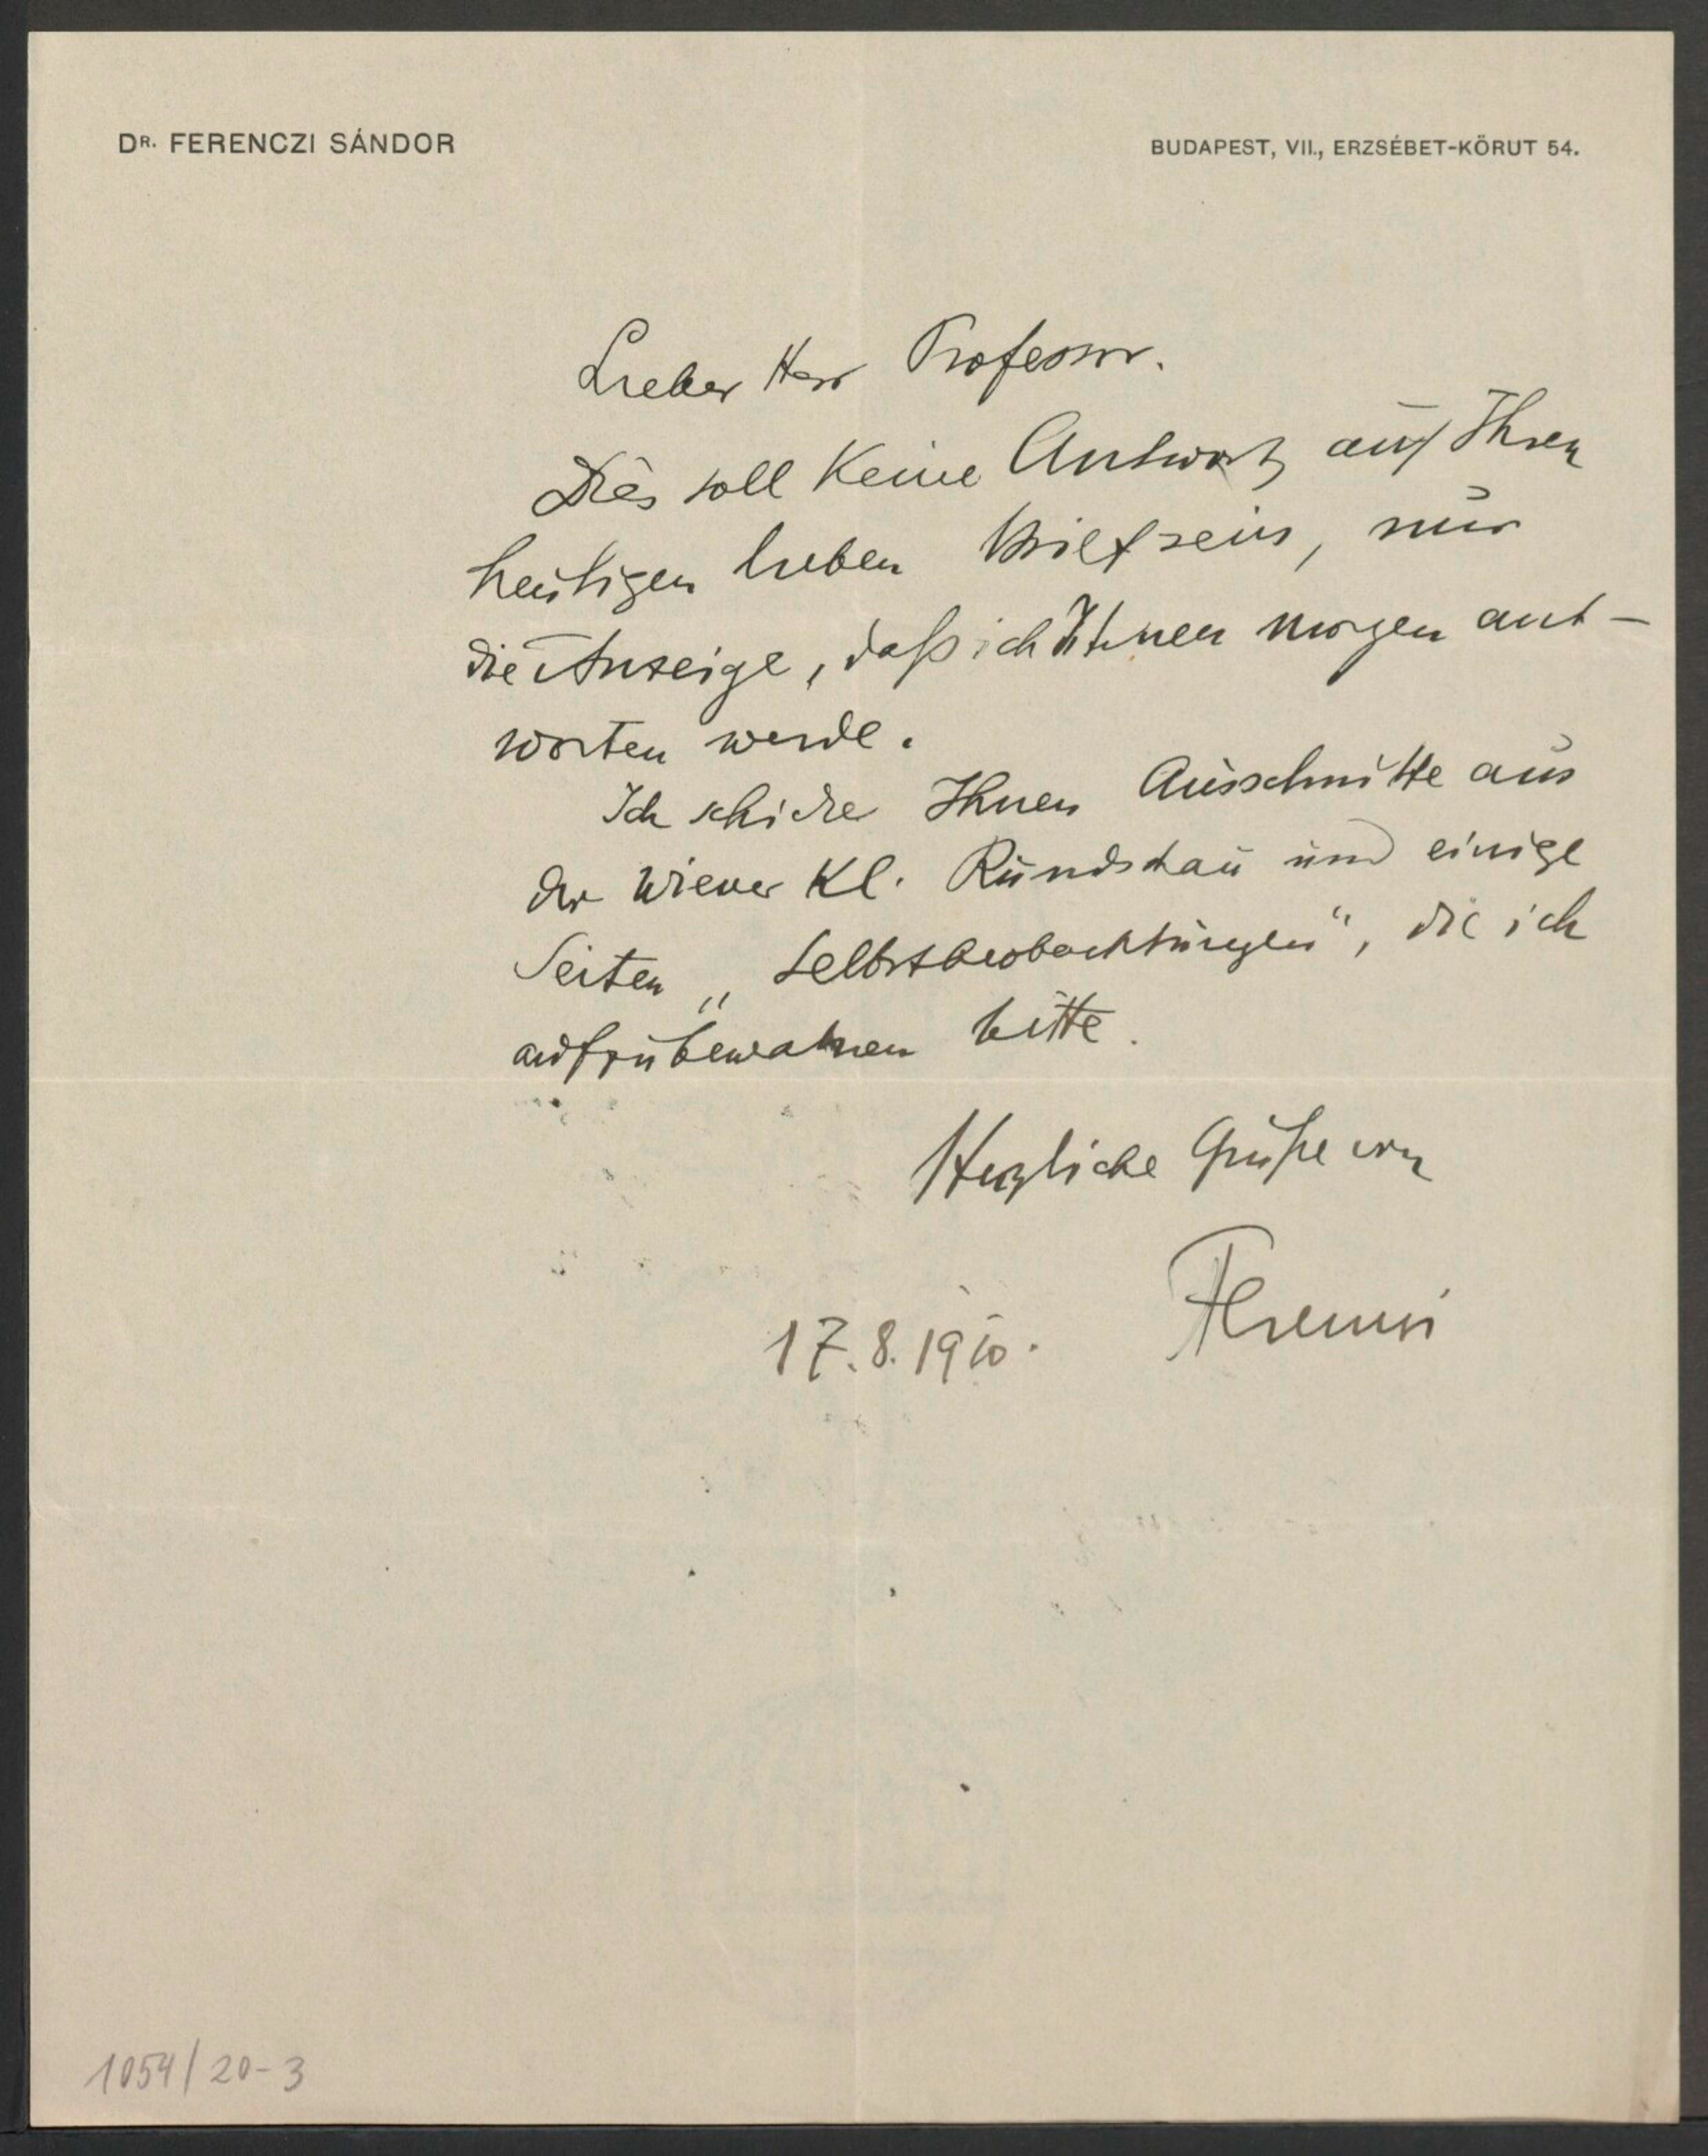 DR. FERENCZI SÁNDOR
BUDAPEST, VII., ERZSÉBET-KÖRUT 54.
Lieber Herr Professor.
Dies soll keine Antwort auf Ihren
heutigen lieben Brief sein, nur
die Anzeige, daß ich Ihnen morgen ant-
worten werde.
Ich schicke Ihnen Ausschnitte aus
der Wiener Kl. Rundschau und einige
Seiten „Selbstbeobachtungen“, die ich
aufzubewahren bitte.
Herzliche Grüße von
Ferenczi
17.8.1910.
1054/20-3